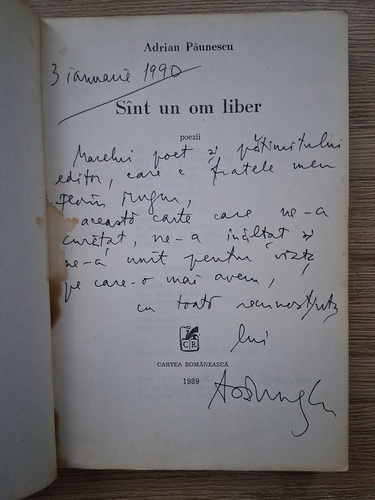 Adrian Păunescu
3 ianuarie 1990
Sînt un om liber
poezii
Marelui poet și pătimitului
editor, care e fratele meu
Florin Mugur,
această carte care ne-a
curățat, ne-a înălțat și
ne-a unit pentru viața
pe care-o mai avem,
cu toată recunoștința
lui
CR
CARTEA ROMÂNEASCĂ
1989